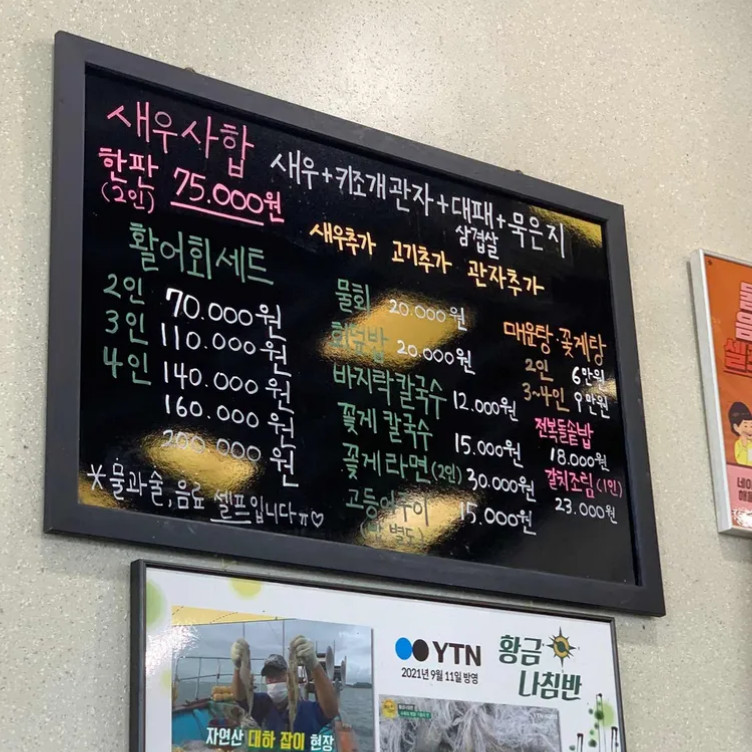 새우사합
한판 75.000원
(2인)
새우+키조개관자+대패+묵은지
삼겹살
새우추가 고기추가 관자추가
활어회세트
2인 70.000원
3인 110.000원
4인 140.000원
160.000원
200.000원
물회 20.000원
회덮밥 20.000원
바지락칼국수 12.000원
꽃게 칼국수 15.000원
꽃게라면(2인) 30.000원
고등어구이 15.000원
(밥 별도)
매운탕·꽃게탕
2인 6만원
3~4인 9만원
전복돌솥밥
18.000원
갈치조림(1인)
23.000원
*물과술, 음료 셀프입니다ㅠ♡
YTN
2021년 9월 11일 방영
황금
나침반
자연산 대하 잡이 현장